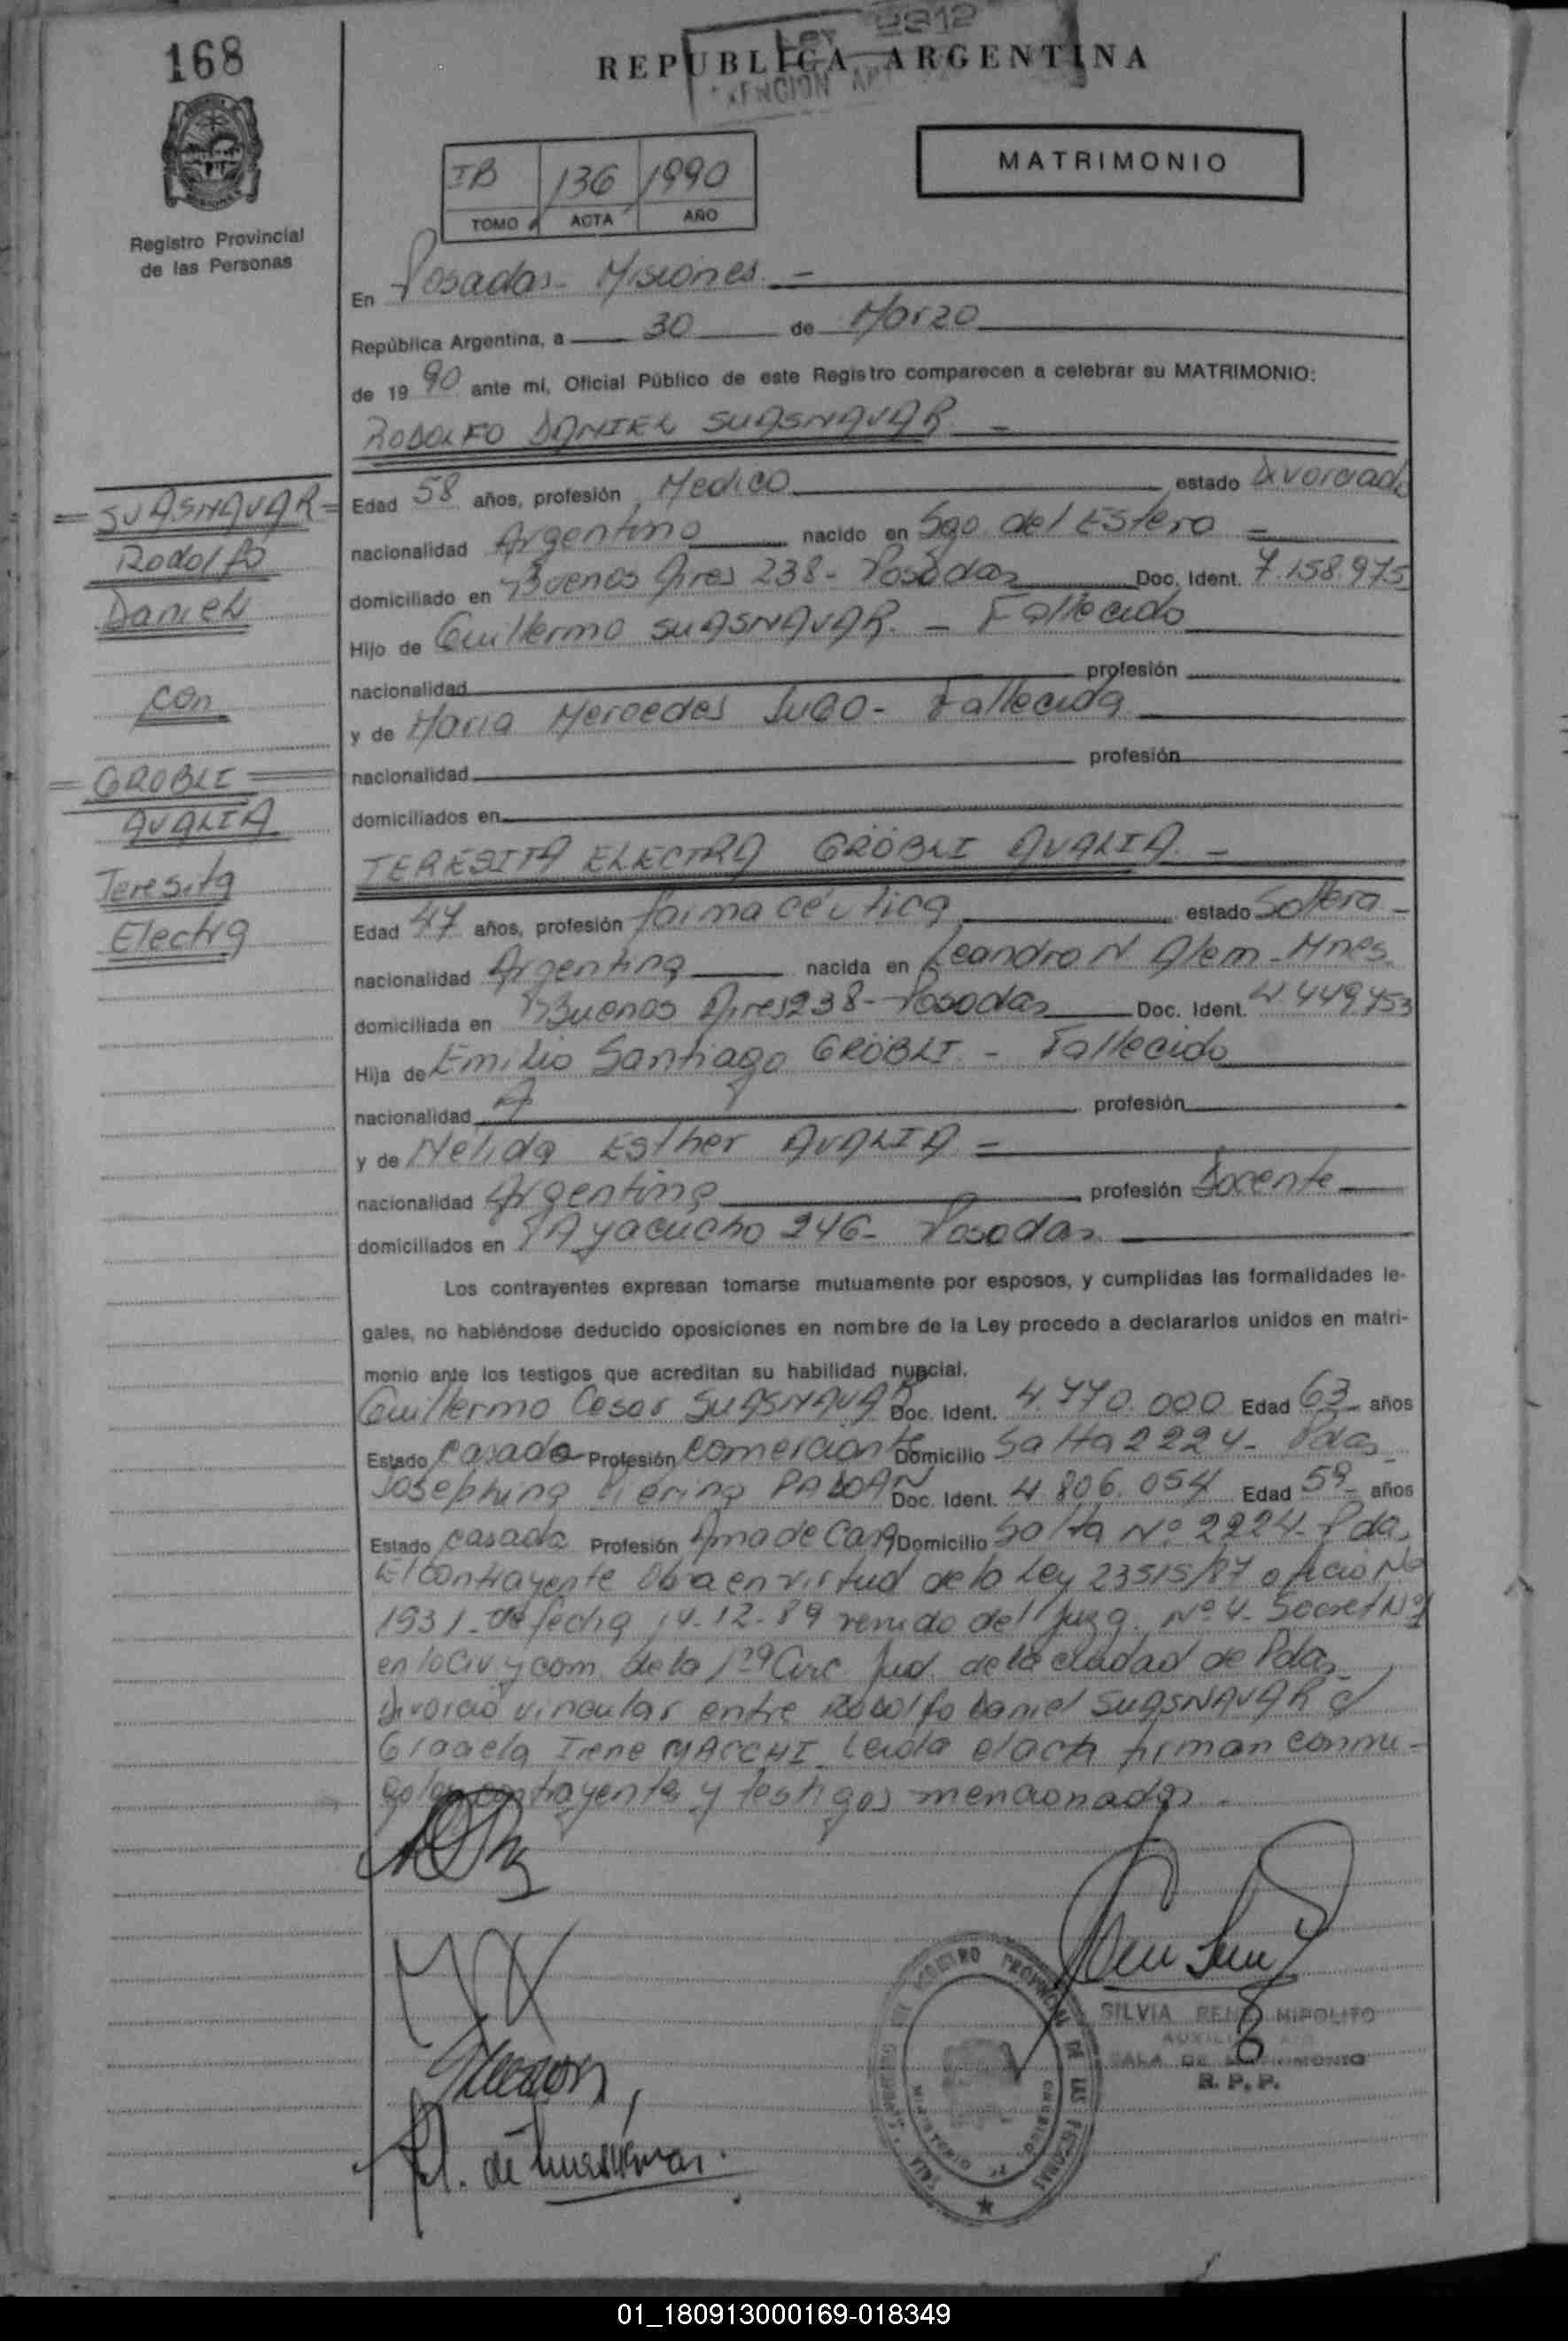 168
Ley 2812
REPUBLICA ARGENTINA
MATRIMONIO
IB 136 1990
TOMO ACTA AÑO
Registro Provincial
de las Personas
En Posadas - Misiones. -
República Argentina, a 30 de Marzo
de 1990 ante mí, Oficial Público de este Registro comparecen a celebrar su MATRIMONIO:
RODOLFO DANIEL SUASNAVAR. -
= SUASNAVAR =
Rodolfo
Daniel
con
= GROBLI =
AVALIA
Teresita
Electra
Edad 58 años, profesión Medico estado divorciado
nacionalidad Argentino nacido en Sgo. del Estero =
domiciliado en Buenos Aires 238 - Posadas Doc. Ident. 7.158.975
Hijo de Guillermo SUASNAVAR. - Fallecido
nacionalidad profesión
y de Maria Mercedes - Fallecida
nacionalidad profesión
domiciliados en
TERESITA ELECTRA GRÖBLI AVALIA. -
Edad 47 años, profesión farmacéutica estado Soltera -
nacionalidad Argentina nacida en Leandro N Alem - Mnes.
domiciliada en Buenos Aires 238 - Posadas Doc. Ident. 4.449.453
Hija de Emilio Santiago GRÖBLI. - Fallecido
nacionalidad profesión
y de Nelida Esther AVALIA. =
nacionalidad Argentina profesión Docente
domiciliados en Ayacucho 246 - Posadas
Los contrayentes expresan tomarse mutuamente por esposos, y cumplidas las formalidades le-
gales, no habiéndose deducido oposiciones en nombre de la Ley procedo a declararlos unidos en matri-
monio ante los testigos que acreditan su habilidad nupcial.
Guillermo Cesar SUASNAVAR Doc. Ident. 4.770.000 Edad 63 años
Estado casado Profesión comerciante Domicilio Salta 2224 - Pdas
Josephina Pierina Doc. Ident. 4.806.054 Edad 59 años
Estado casada Profesión Ama de Casa Domicilio Salta Nº 2224 - Pdas.
El contrayente Obra en virtud de la Ley 23515/87 oficio Nº
1931 - de fecha 14-12-89 venido del Juzg. Nº 4 - Secret Nº 1
en lo Civ y com. de la 1ra Circ Jud. de la ciudad de Pdas
divorcio vincular entre Rodolfo Daniel SUASNAVAR c/
Graciela Irene MACCHI. Leida el acta firman conmi-
go los contrayentes y testigos mencionados.
SILVIA RENE HIPOLITO
SALA DE MATRIMONIO
R. P. P.
REGISTRO PROVINCIAL DE LAS PERSONAS
01_180913000169-018349